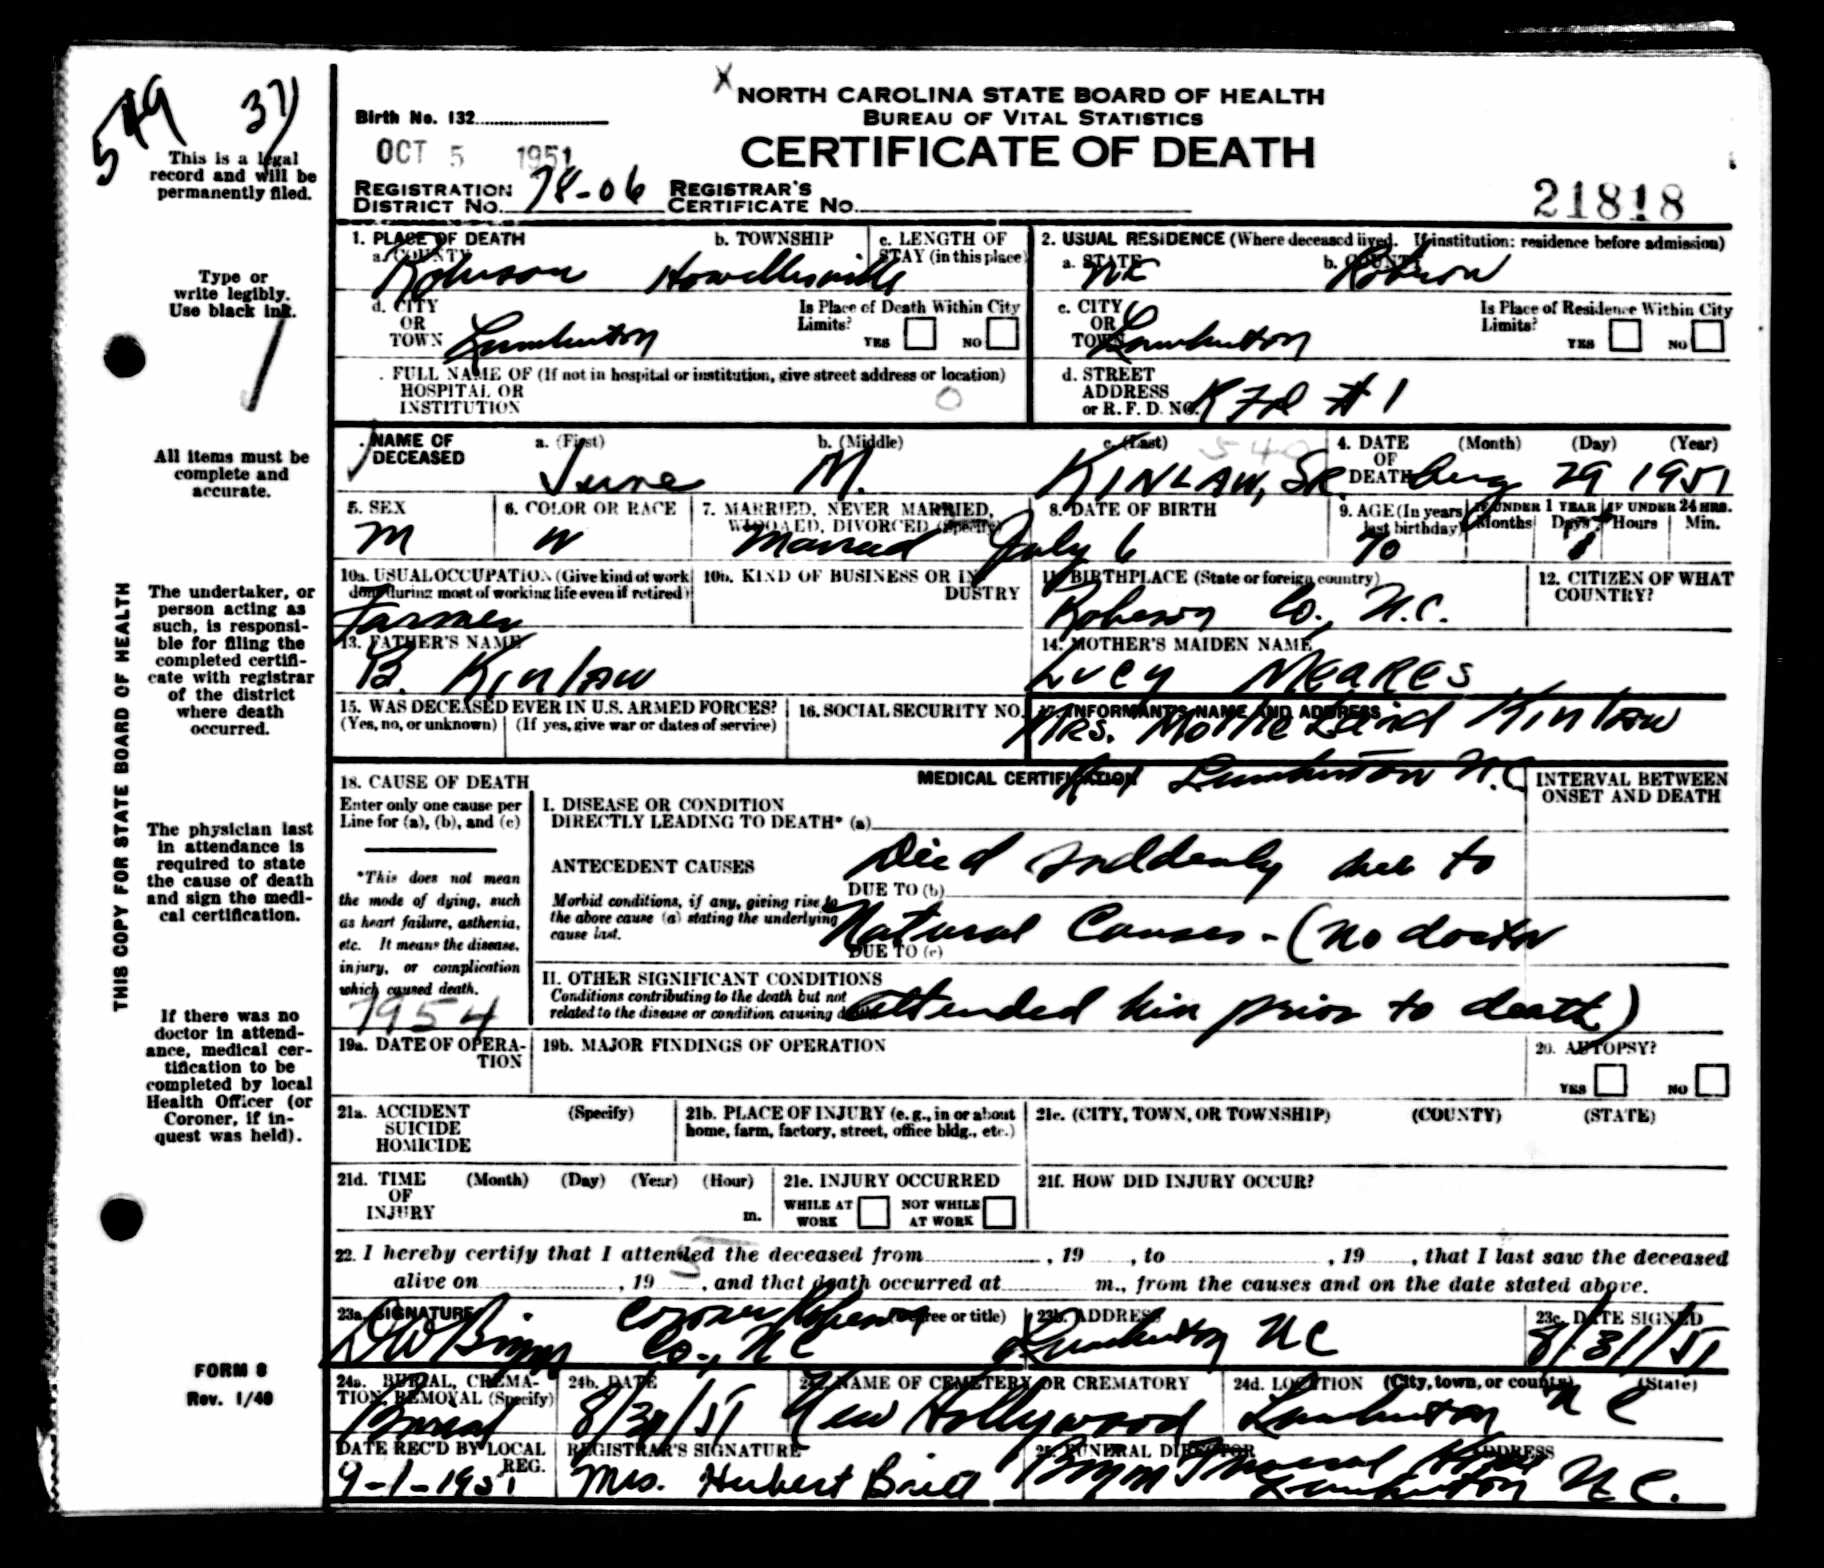 549 37
This is a legal
record and will be
permanently filed.
Type or
write legibly.
Use black ink.
All items must be
complete and
accurate.
The undertaker, or
person acting as
such, is responsi-
ble for filing the
completed certifi-
cate with registrar
of the district
where death
occurred.
THIS COPY FOR STATE BOARD OF HEALTH
The physician last
in attendance is
required to state
the cause of death
and sign the medi-
cal certification.
If there was no
doctor in attend-
ance, medical cer-
tification to be
completed by local
Health Officer (or
Coroner, if in-
quest was held).
FORM 8
Rev. 1/49
X NORTH CAROLINA STATE BOARD OF HEALTH
BUREAU OF VITAL STATISTICS
CERTIFICATE OF DEATH
Birth No. 132
OCT 5 1951
REGISTRATION DISTRICT NO. 78-06 REGISTRAR'S CERTIFICATE NO.
21818
1. PLACE OF DEATH
a. COUNTY Robeson b. TOWNSHIP Howellsville c. LENGTH OF STAY (in this place)
2. USUAL RESIDENCE (Where deceased lived. If institution: residence before admission)
a. STATE NC b. COUNTY Robeson
d. CITY OR TOWN Lumberton Is Place of Death Within City Limits? YES NO
c. CITY OR TOWN Lumberton Is Place of Residence Within City Limits? YES NO
. FULL NAME OF (If not in hospital or institution, give street address or location) HOSPITAL OR INSTITUTION 0
d. STREET ADDRESS or R. F. D. NO. RFD #1
NAME OF DECEASED a. (First) June b. (Middle) M. c. (Last) KINLAW, SR.
4. DATE OF DEATH (Month) (Day) (Year) Aug 29 1951
5. SEX M 6. COLOR OR RACE W 7. MARRIED, NEVER MARRIED, WIDOWED, DIVORCED (Specify) Married
8. DATE OF BIRTH July 6 9. AGE (In years last birthday) 70 IF UNDER 1 YEAR Months Days IF UNDER 24 HRS. Hours Min.
10a. USUAL OCCUPATION (Give kind of work done during most of working life even if retired) Farmer
10b. KIND OF BUSINESS OR INDUSTRY
11. BIRTHPLACE (State or foreign country) Robeson Co., N.C.
12. CITIZEN OF WHAT COUNTRY?
13. FATHER'S NAME B. Kinlaw
14. MOTHER'S MAIDEN NAME Lucy Meares
15. WAS DECEASED EVER IN U.S. ARMED FORCES? (Yes, no, or unknown) (If yes, give war or dates of service)
16. SOCIAL SECURITY NO.
17. INFORMANT'S NAME AND ADDRESS Mrs. Mollie Kinlaw
Lumberton N.C
18. CAUSE OF DEATH
Enter only one cause per
Line for (a), (b), and (c)
*This does not mean
the mode of dying, such
as heart failure, asthenia,
etc. It means the disease,
injury, or complication
which caused death.
7954
MEDICAL CERTIFICATION
INTERVAL BETWEEN
ONSET AND DEATH
I. DISEASE OR CONDITION
DIRECTLY LEADING TO DEATH* (a)
ANTECEDENT CAUSES
Morbid conditions, if any, giving rise to
the above cause (a) stating the underlying
cause last.
Died suddenly due to
DUE TO (b)
Natural Causes - (no doctor
DUE TO (c)
II. OTHER SIGNIFICANT CONDITIONS
Conditions contributing to the death but not
related to the disease or condition causing
attended him prior to death)
19a. DATE OF OPERATION 19b. MAJOR FINDINGS OF OPERATION
20. AUTOPSY? YES NO
21a. ACCIDENT SUICIDE HOMICIDE (Specify)
21b. PLACE OF INJURY (e. g., in or about home, farm, factory, street, office bldg., etc.)
21c. (CITY, TOWN, OR TOWNSHIP) (COUNTY) (STATE)
21d. TIME OF INJURY (Month) (Day) (Year) (Hour) m.
21e. INJURY OCCURRED WHILE AT WORK NOT WHILE AT WORK
21f. HOW DID INJURY OCCUR?
22. I hereby certify that I attended the deceased from , 19 , to , 19 , that I last saw the deceased
alive on , 19 , and that death occurred at m., from the causes and on the date stated above.
23a. SIGNATURE (Degree or title) Coroner Robeson Co., NC
23b. ADDRESS Lumberton NC
23c. DATE SIGNED 8/31/51
24a. BURIAL, CREMATION, REMOVAL (Specify) Burial
24b. DATE 8/30/51
24c. NAME OF CEMETERY OR CREMATORY New Hollywood
24d. LOCATION (City, town, or county) (State) Lumberton N C
DATE REC'D BY LOCAL REG. 9-1-1951
REGISTRAR'S SIGNATURE Mrs. Herbert Britt
25. FUNERAL DIRECTOR ADDRESS Funeral Home
Lumberton N.C.